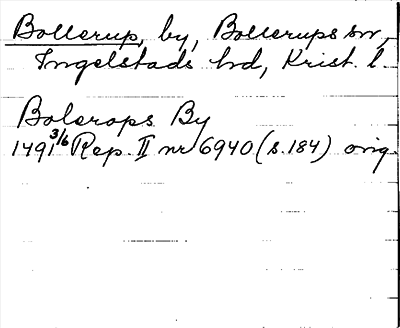 Bollerup, by, Bollerups sn,
Ingelstads hd, Krist. l.
Bolerops By
1491 3/6 Rep. II nr 6940 (s. 184) orig.